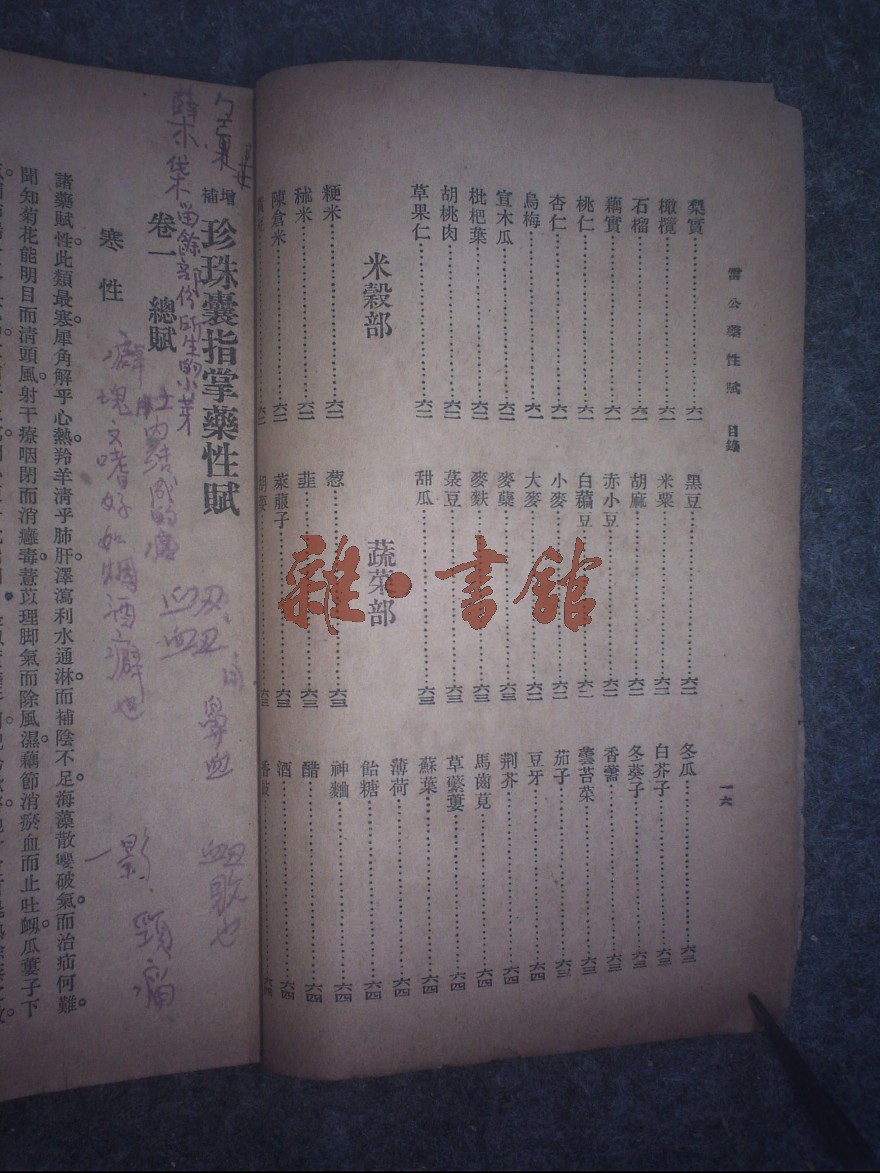 雷公藥性賦 目錄
一六
梨實……六一
橄欖……六一
石榴……六一
藕實……六一
桃仁……六一
杏仁……六一
烏梅……六一
宣木瓜……六一
枇杷葉……六二
胡桃肉……六二
草果仁……六二
米穀部
粳米……六二
秫米……六二
陳倉米……六二
黑豆……六二
米粟……六二
胡麻……六二
赤小豆……六二
白藊豆……六二
小麥……六二
大麥……六二
麥糵……六三
麥麩……六三
菉豆……六三
甜瓜……六三
蔬菜部
葱……六三
韭……六三
萊菔子……六三
胡荽……六三
冬瓜……六三
白芥子……六三
冬葵子……六三
香薷……六三
蕓苔菜……六三
茄子……六三
豆牙……六四
荆芥……六四
馬齒莧……六四
草蘩蔞……六四
蘇葉……六四
薄荷……六四
飴糖……六四
神麯……六四
醋……六四
酒……六四
香豉……六四
雜·書館
增補 珍珠囊指掌藥性賦
卷一 總賦
寒性
諸藥賦性。此類最寒。犀角解乎心熱。羚羊清乎肺肝。澤瀉利水通淋而補陰不足。海藻散癭破氣而治疝何難。
聞知菊花能明目而清頭風。射干療咽閉而消癰毒。薏苡理脚氣而除風濕。藕節消瘀血而止吐衄。瓜蔞子下
留餘部份所生的小芽
肚内結成的塊
又嗜好如烟酒癖也
鼻血